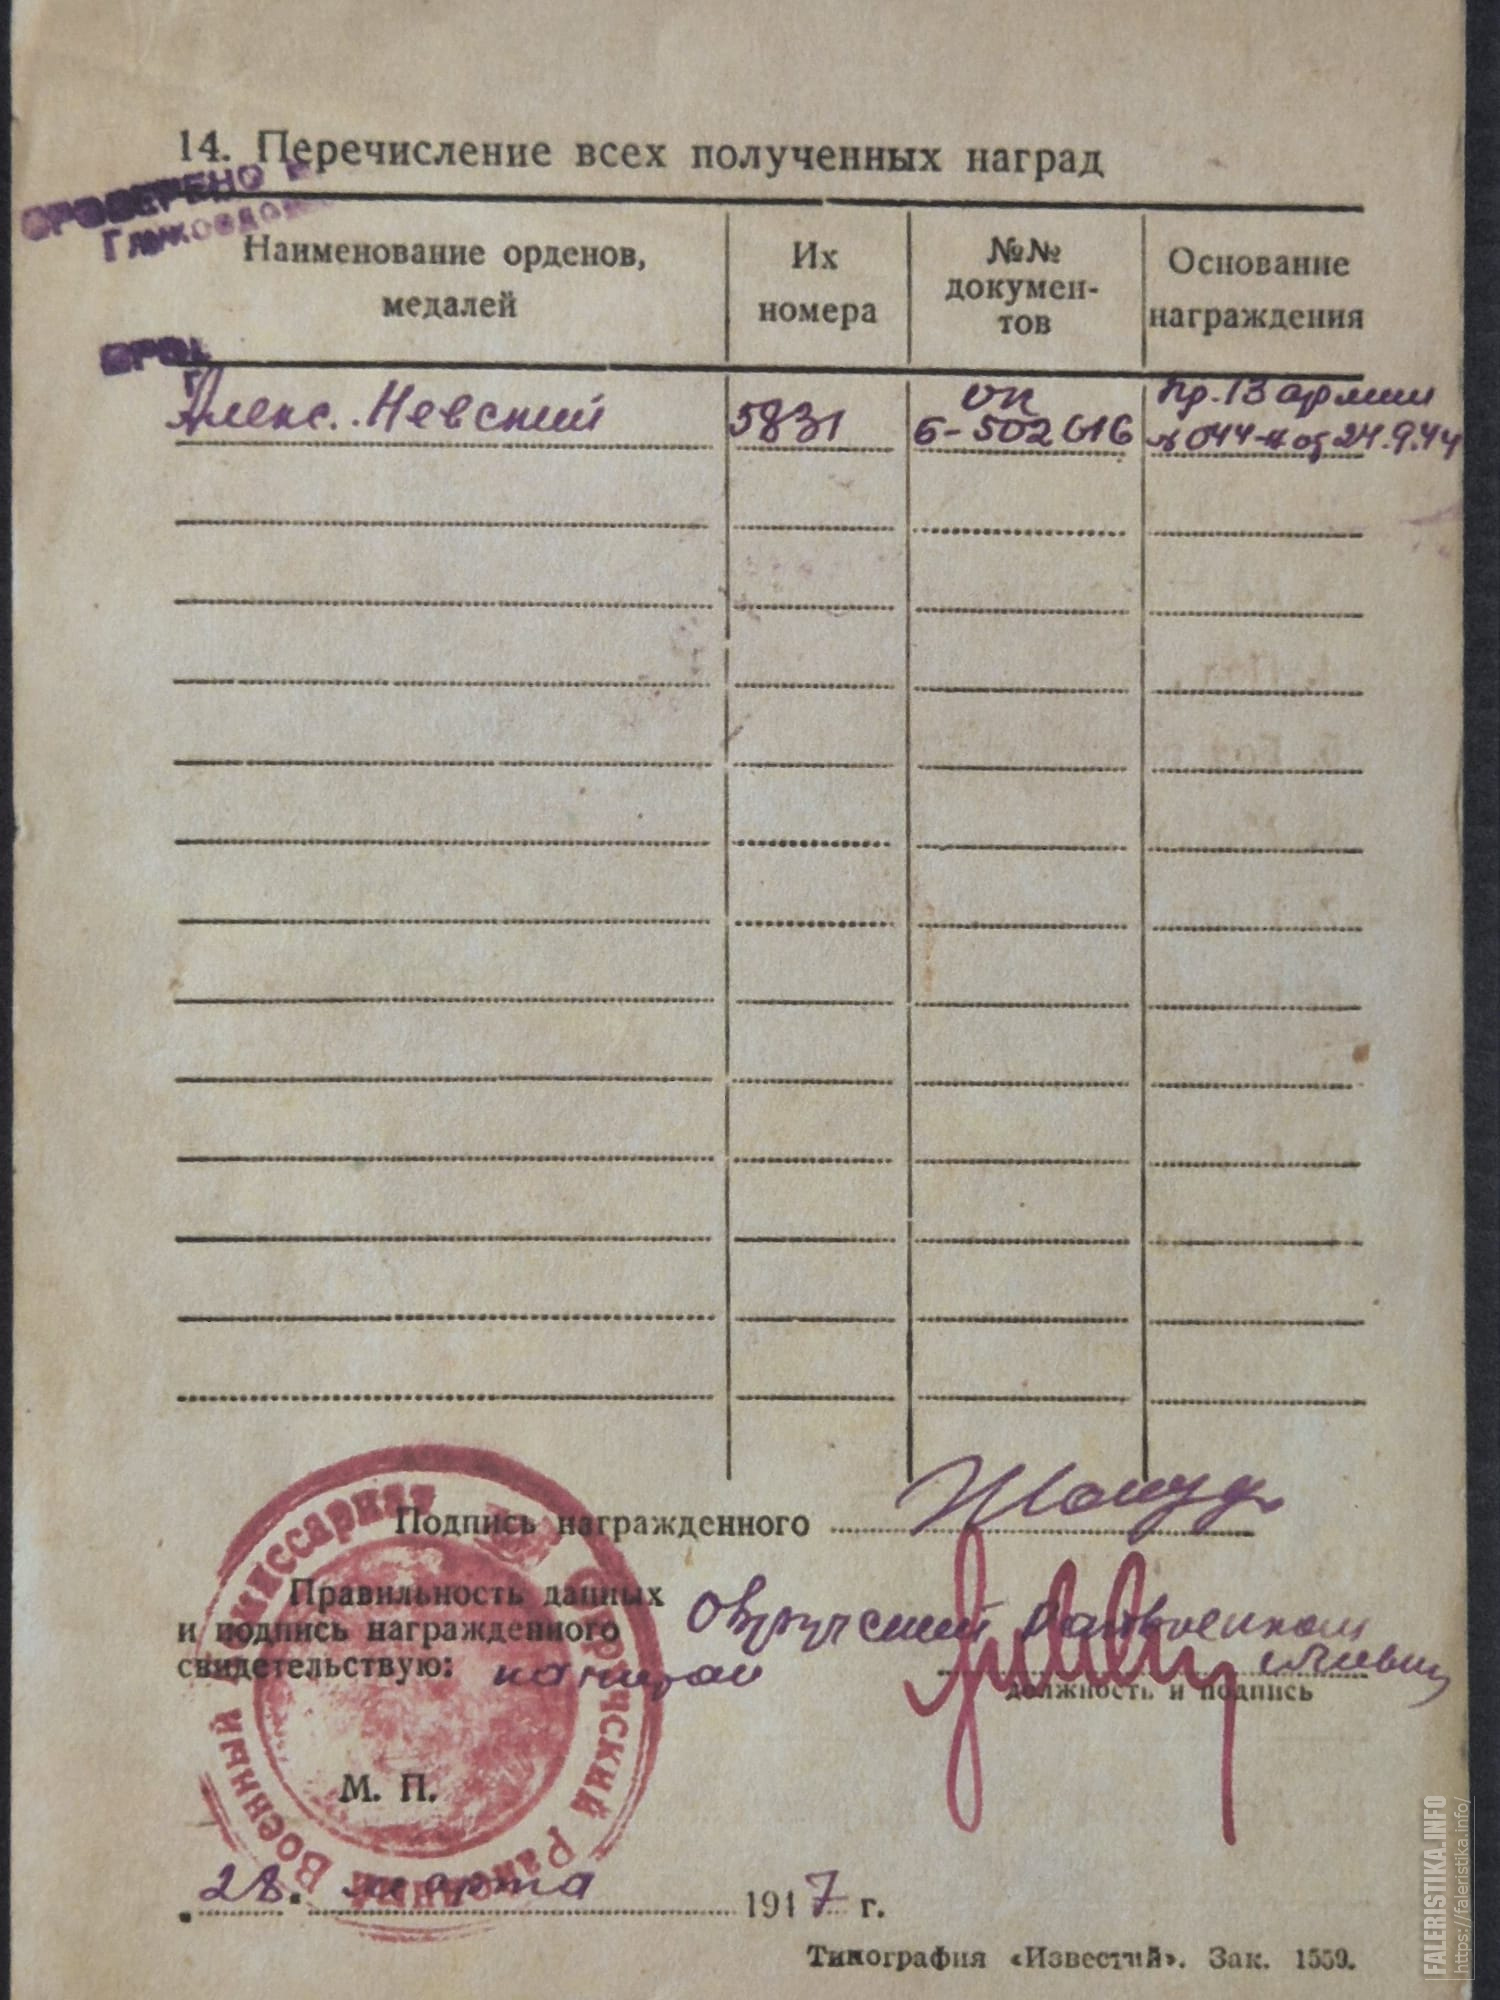 14. Перечисление всех полученных наград
ПРОВЕРЕНО
Наименование орденов,
медалей
Их
номера
№№
докумен-
тов
Основание
награждения
Алекс. Невский
5831
ок
Б-502616
Пр. 13 армии
№ 044-н от 24.9.44
Подпись награжденного
Правильность данных
и подпись награжденного
свидетельствую:
Овручский Райвоенком
капитан
должность и подпись
Овручский Районный Военный Комиссариат
М. П.
28. марта 1947 г.
Типография «Известий». Зак. 1559.
FALERISTIKA.INFO
https://faleristika.info/